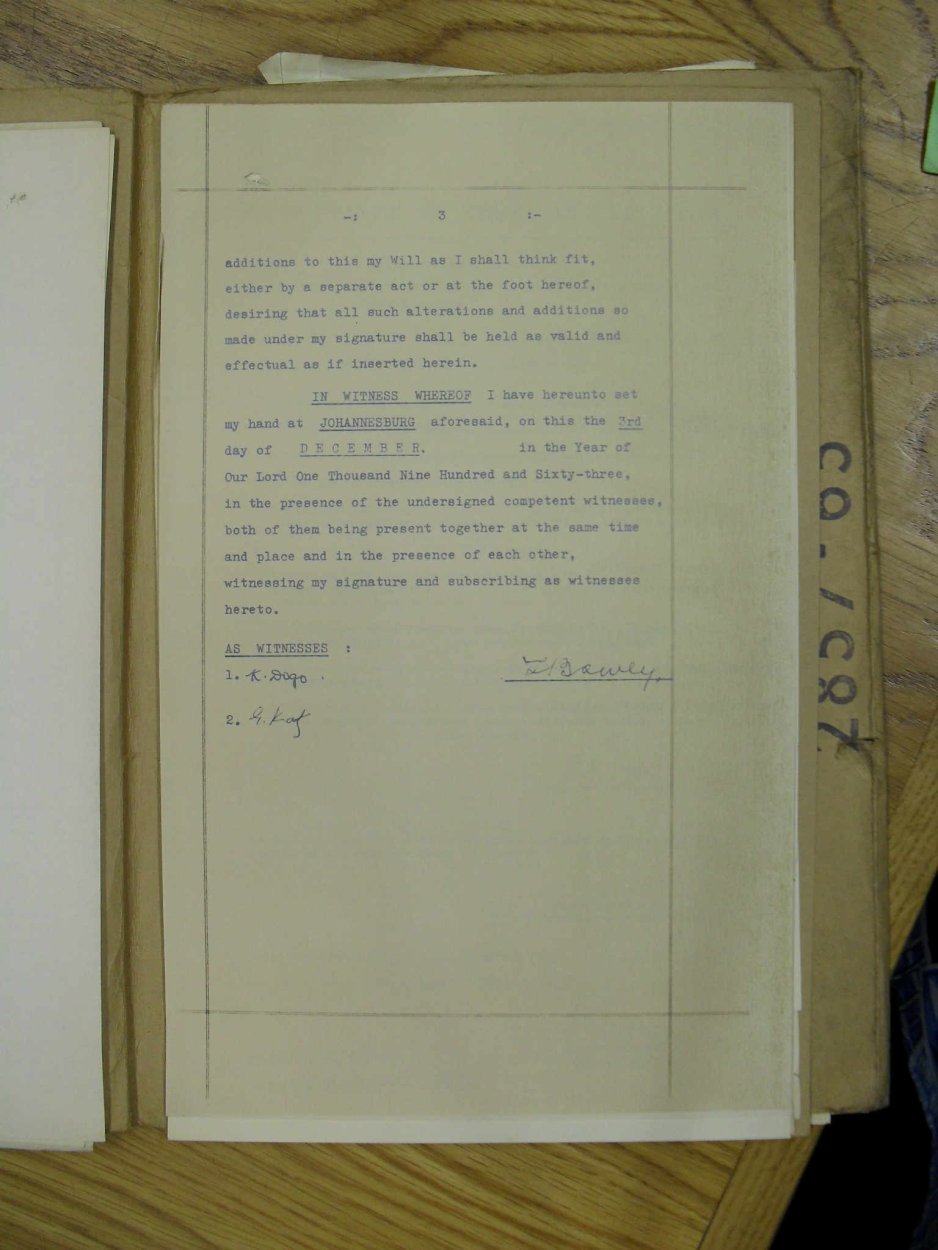 -: 3 :-
additions to this my Will as I shall think fit,
either by a separate act or at the foot hereof,
desiring that all such alterations and additions so
made under my signature shall be held as valid and
effectual as if inserted herein.
IN WITNESS WHEREOF I have hereunto set
my hand at JOHANNESBURG aforesaid, on this the 3rd
day of D E C E M B E R. in the Year of
Our Lord One Thousand Nine Hundred and Sixty-three,
in the presence of the undersigned competent witnesses,
both of them being present together at the same time
and place and in the presence of each other,
witnessing my signature and subscribing as witnesses
hereto.
AS WITNESSES :
1. K. Dogo.
2. G.